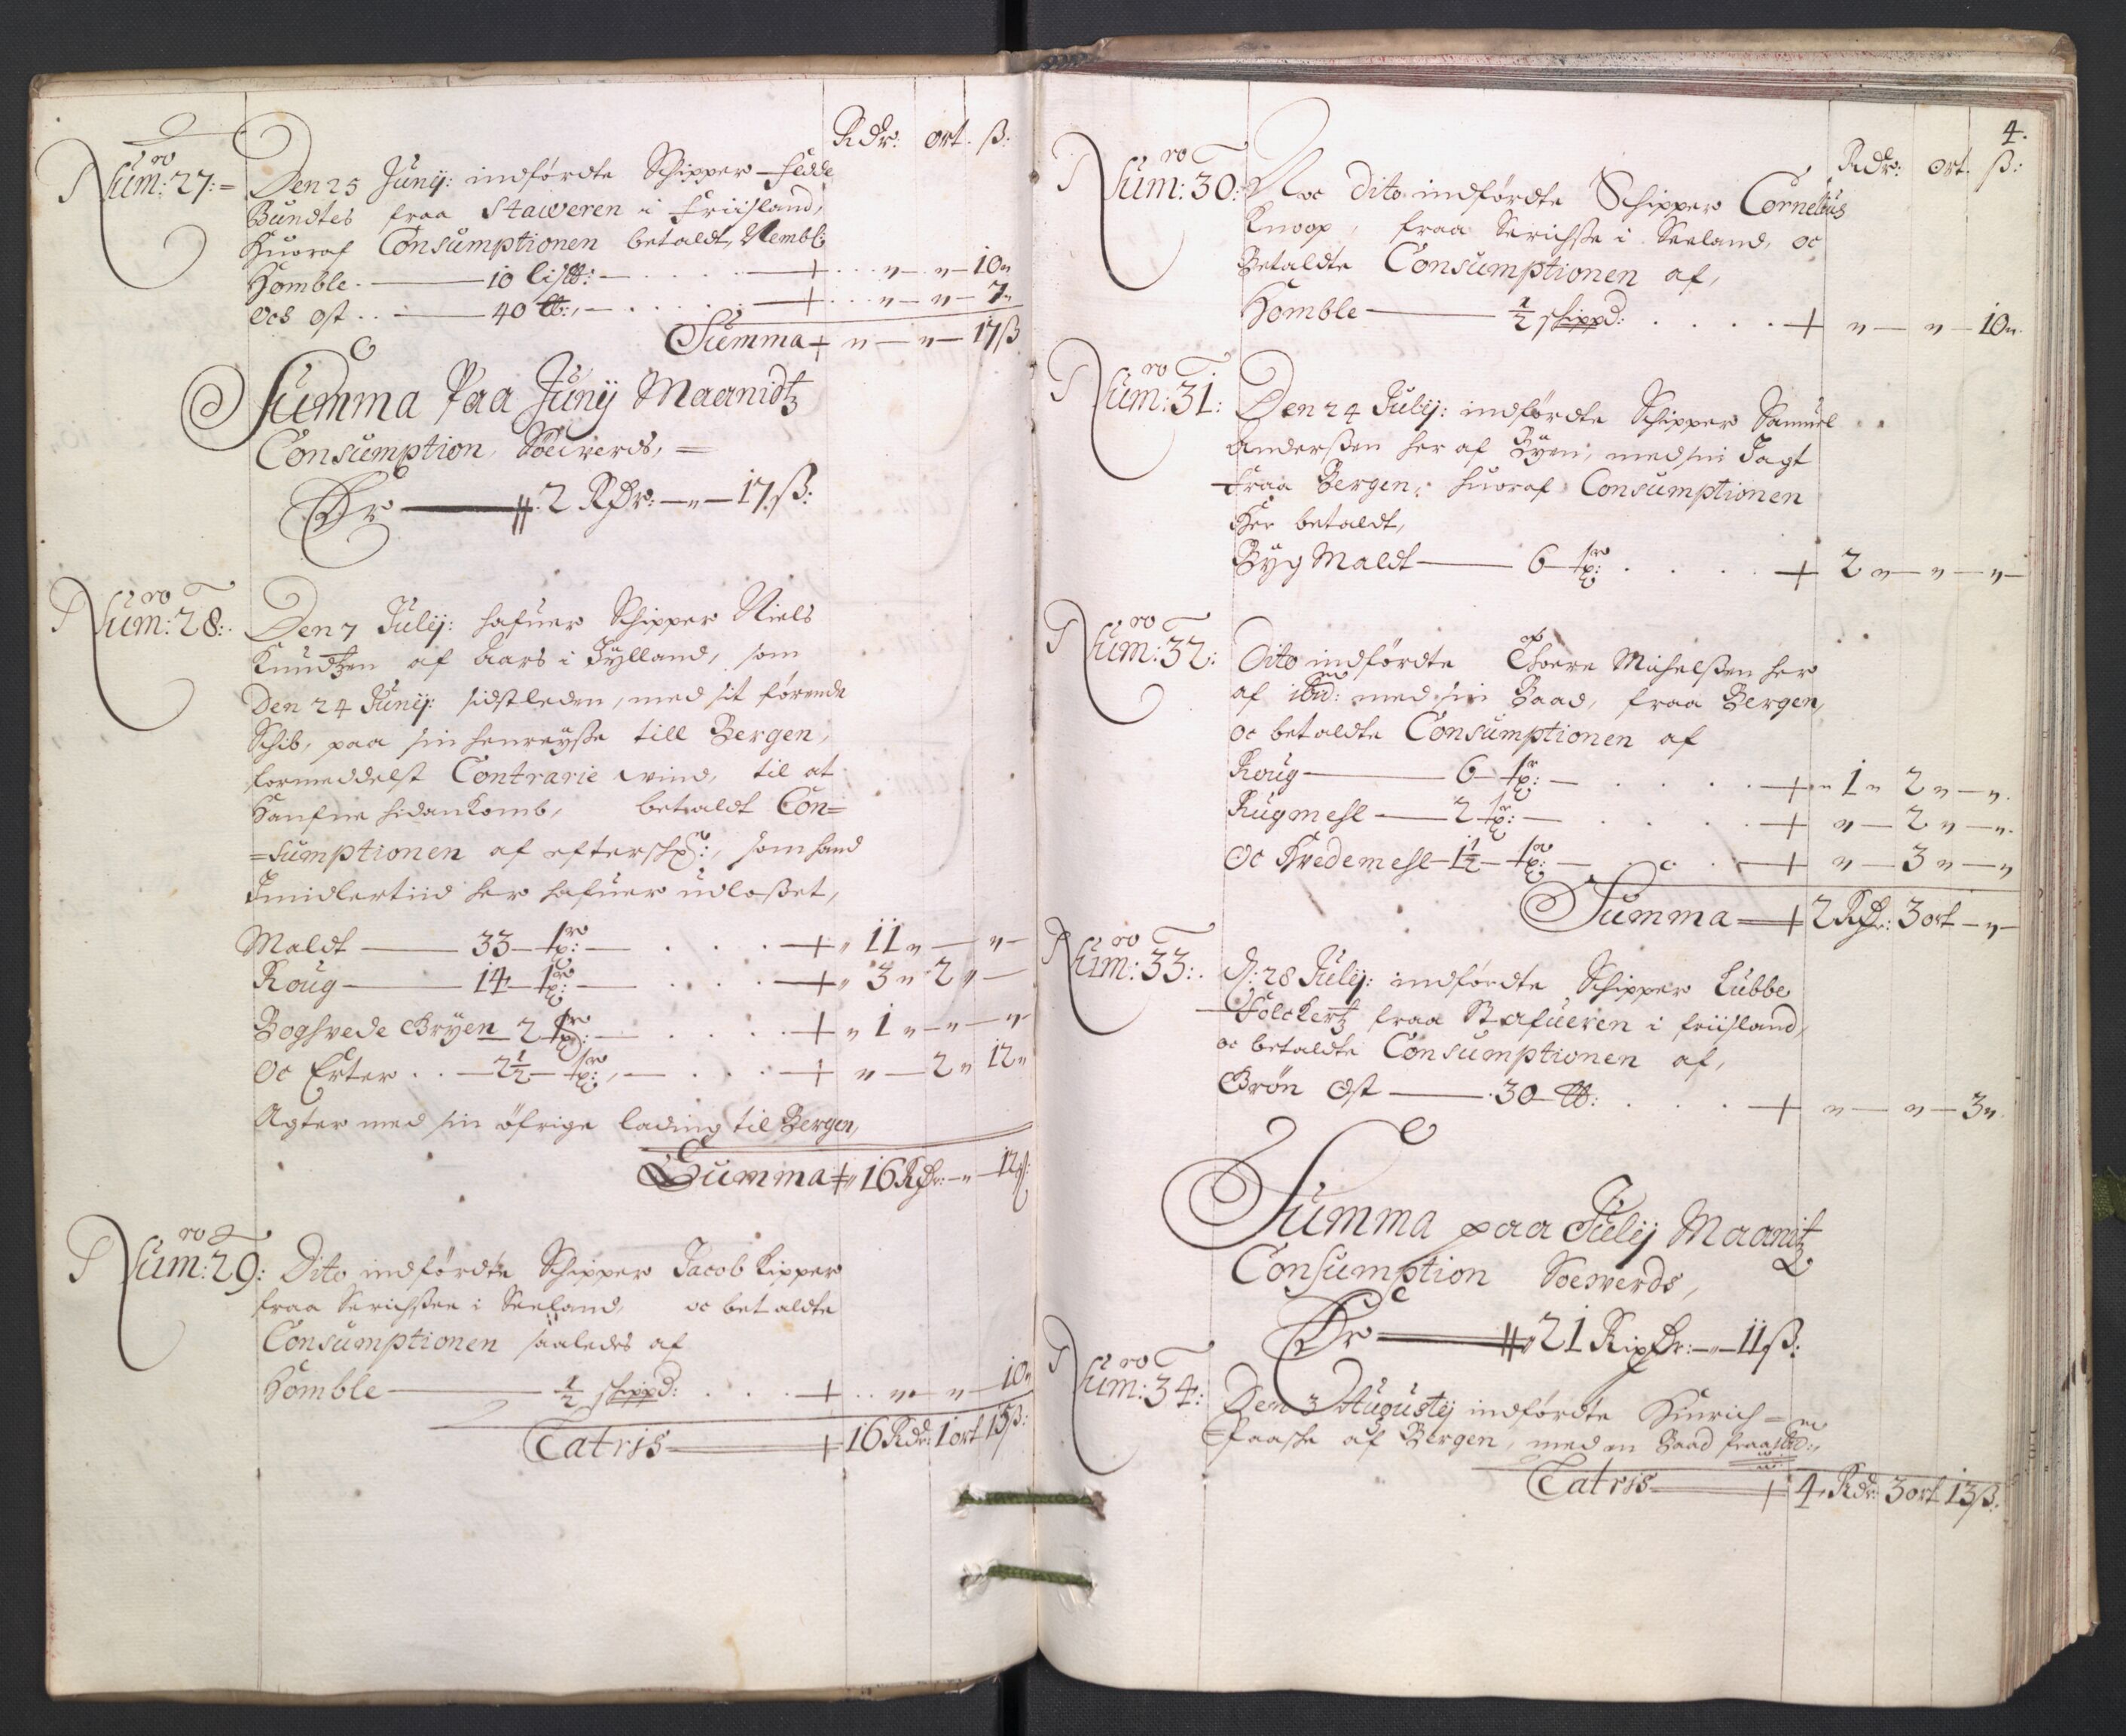 Rdr: ort. ß:
Num:ro 27:=
Den 25 Junij: indførdte Schipper Fedde
Bundtes fraa Staweren i Friisland,
huoraf Consumptionen betaldt, Nembl:
Homble. — 10 lis℔: — . . . . + . . . „ — „ — 10„
Och ost . . — 40 ℔:, — . . . . + . . . „ — „ — 7„
Summa + „ — „ — 17ß
Summa Paa Junij Maanidtz
Consumption, Søewerds, =
Er — 2 Rdr: — „ — 17.ß:
Num:ro 28:.
Den 7 Julij: hafuer Schipper Niels
Knudtzen af Aars i Jylland, som
Den 24 Junij: sidstleden, med sit førende
Schib, paa sin henreysse till Bergen,
formeddelst Contrarie wind, til at
Haufne hidankomb, betaldt Con=
=sumptionen af efterschr:, som hand
Imidlertiid her hafuer udlosset,
Maldt — 33 tr: — . . . + „ 11 „ — „ —
Roug — 14 tr: — . . . + „ 3 „ 2 „ —
Boghvede Gryen 2 tr: — . . . + „ 1 „ — „ — „
Oc Erter . . — 2½ tr:, — . . . + „ — 2 „ 12„
Agter med sin øfrige lading til Bergen,
Summa + „ 16 Rdr: — „ — 12ß:
Num:ro 29:
Dito indførdte Schipper Jacob Kipper
fraa Serichssee i Seeland, oc betaldte
Consumptionen saaledes af
Homble — ½ schippd: . . . . + . . „ — „ — 10„
Latris — + 16 Rdr: 1 ort 15ß:
4.
Rdr: ort. ß:
Num:ro 30:
Noc dito indførdte Schipper Cornelius
Knoop, fraa Serichsse i Seeland, oc
Betaldte Consumptionen af,
Homble — ½ schippd: . . . . + „ — „ — 10„
Num:ro 31:
Den 24 Julij: indførdte Schipper Samuel
Anderssen her af Byen, med sin Jagt
fraa Bergen, huoraf Consumptionen
Her betaldt,
Byg Maldt — 6 tr: . . . . + 2 „ — „ — „ —
Num:ro 32:
Dito indførdte Thoere Michelssen her
af ibid: med sin Baad, fraa Bergen,
oc betaldte Consumptionen af
Roug — 6 tr: — . . . . + „ 1 „ 2 „ — „
Rugmehl — 2 tr: — . . . . + „ — 2 „ — „
Oc Hvedemehl — 1½ — tr: — . . . + „ — 3 „ — „
Summa — + 2 Rdr: 3 ort — „ —
Num:ro 33:.
D: 28 Julij: indførdte Schipper Lubbe
Folckertz fraa Stafueren i friisland,
oc betaldte Consumptionen af,
Grøn Ost — 30 ℔: . . . + „ — „ — 3„
Summa paa Julij Maanitz
Consumption Søewerds,
Er — 21 Rixdr: — „ — 11ß:
Num:ro 34:
Den 3 Augustij indførdte Hinrich =
=Paasche af Bergen, med en Baad fraa ibid:,
Latris — + 4 Rdr: 3 ort 13ß: